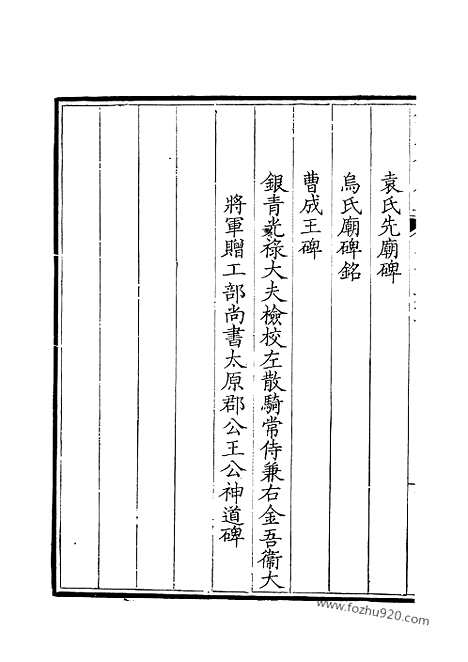 袁氏先廟碑
烏氏廟碑銘
曹成王碑
銀青光祿大夫檢校左散騎常侍兼右金吾衞大
將軍贈工部尚書太原郡公王公神道碑
www.fozhu920.com